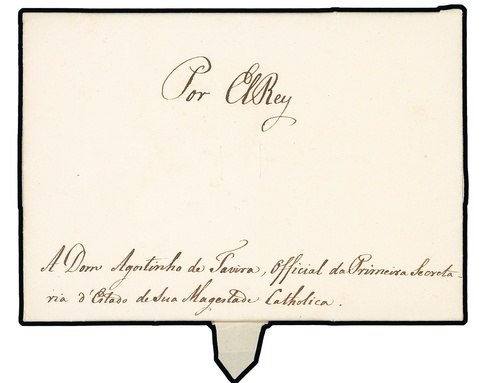 Por ElRey
A Dom Agostinho de Tavira, Official da Primeira Secreta-
ria d'Estado de Sua Magestade Catholica.